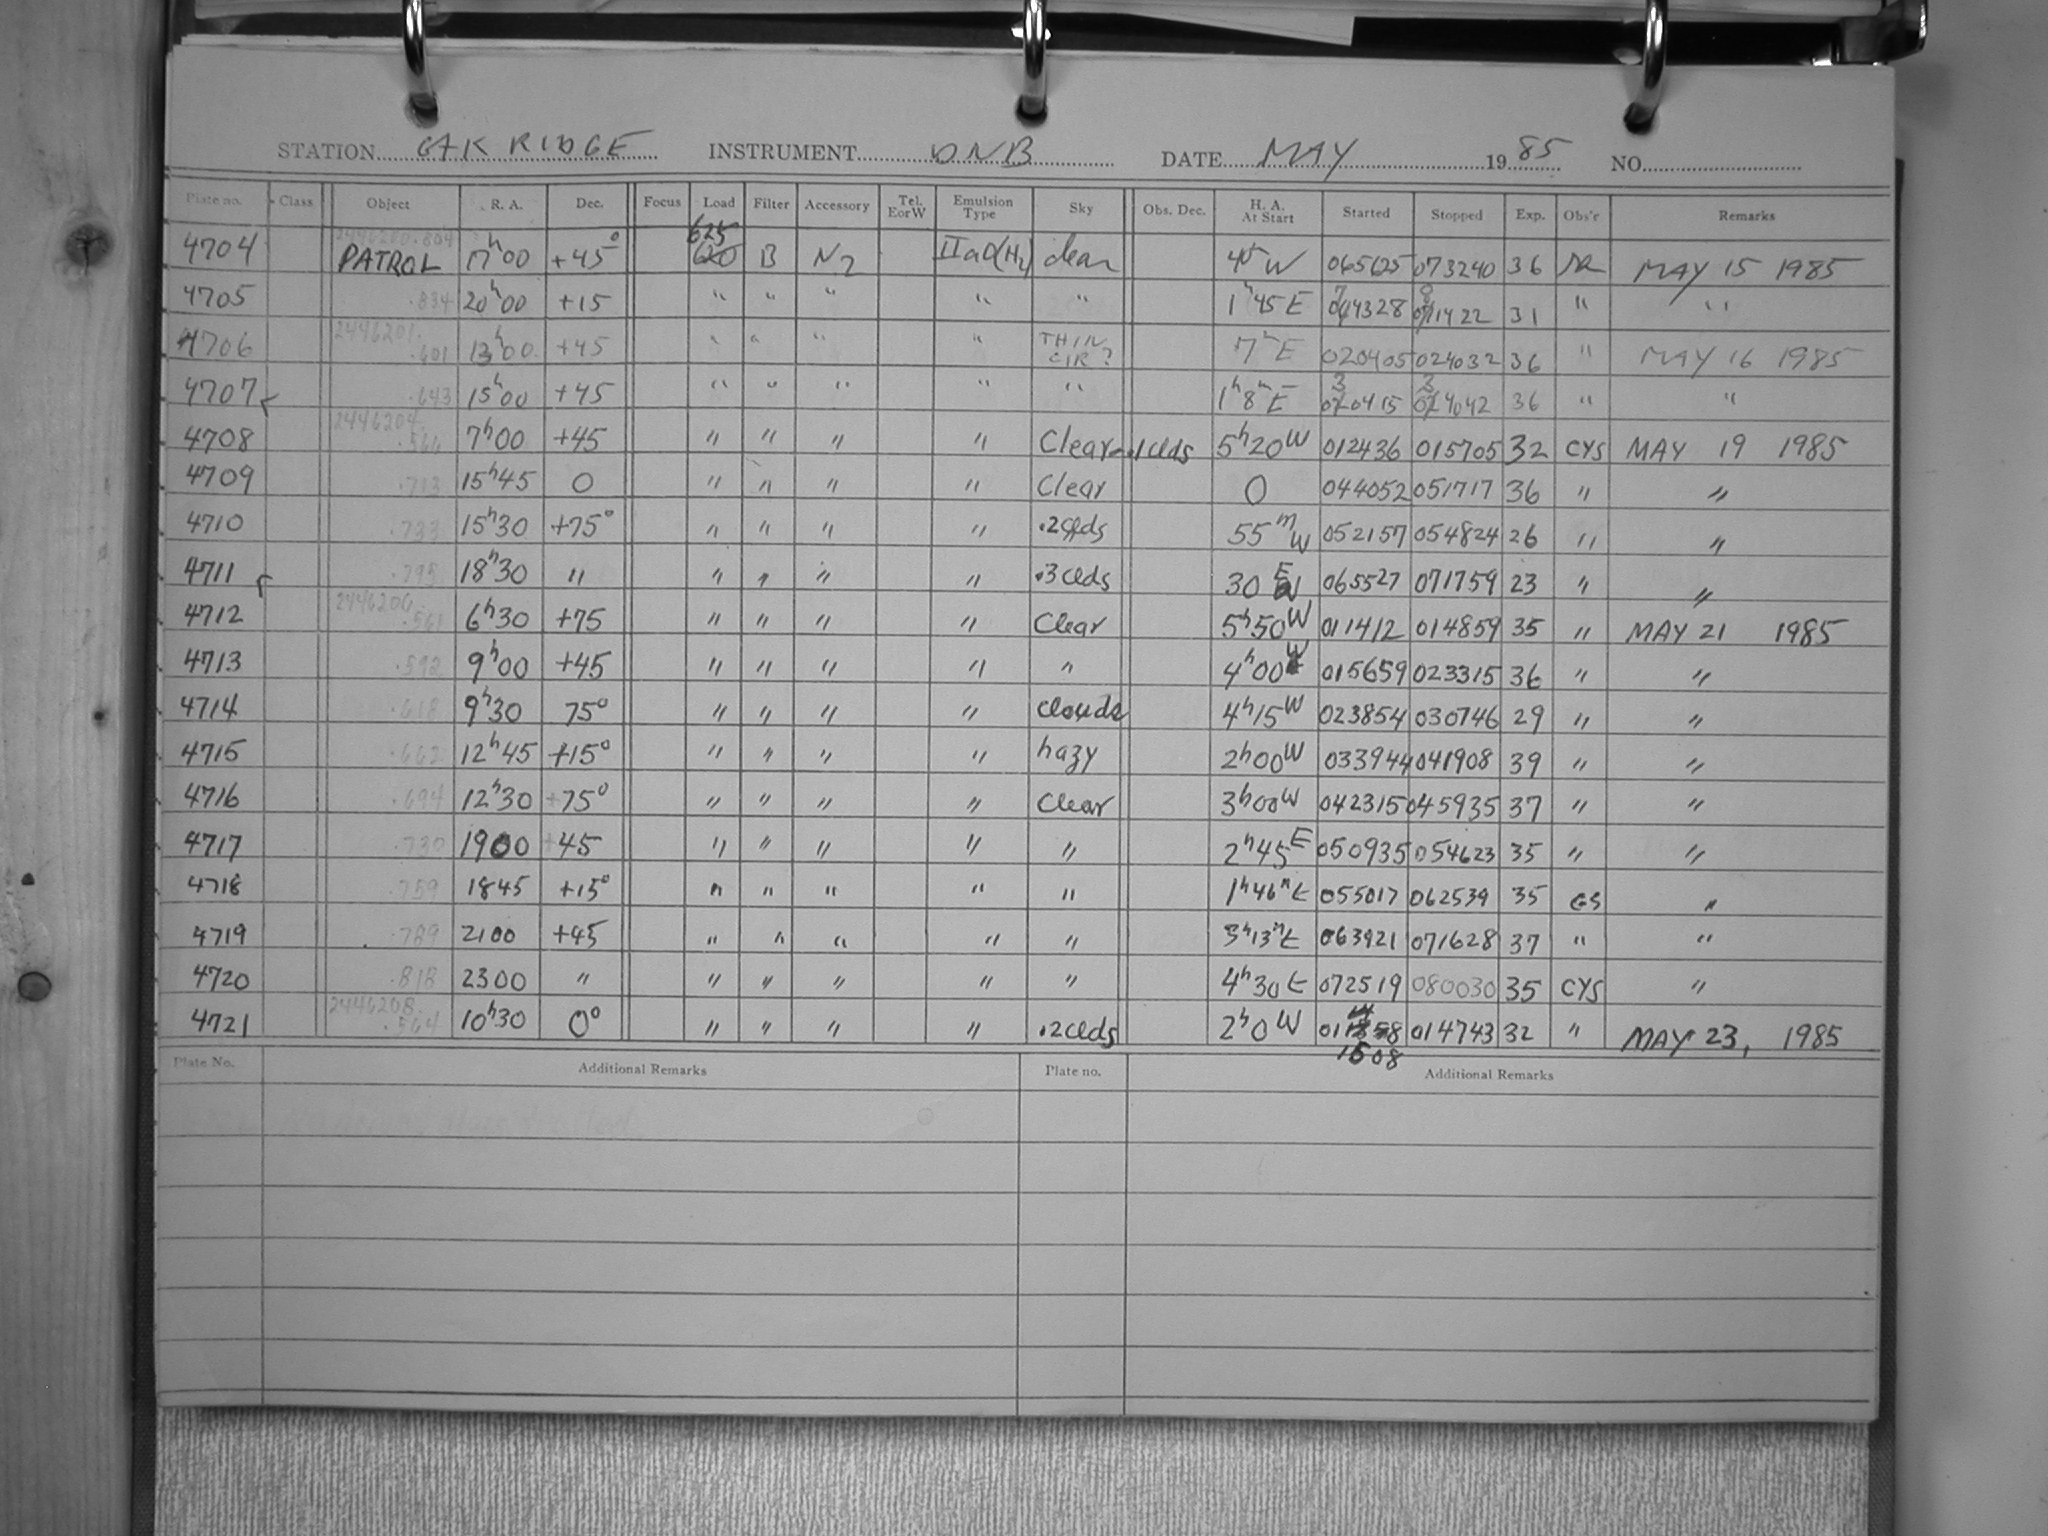 STATION OAK RIDGE INSTRUMENT DNB DATE MAY 19 85 NO.
Plate no. Class Object R. A. Dec. Focus Load Filter Accessory Tel. E or W Emulsion Type Sky Obs. Dec. H. A. At Start Started Stopped Exp. Obs'r Remarks
4704 PATROL 17h00 +45° 625 B N2 IIaO(H2) clear W 065625 073240 36 MAY 15 1985
4705 .834 20h00 +15 " " " " " 1h45E 31 " "
4706 2446201. .601 13h00 +45 " " " " THIN CIR? 7m E 020405 024032 36 " MAY 16 1985
4707 .643 15h00 +45 " " " " " 1h8m E 36 " "
4708 2446204. 7h00 +45 " " " " Clear-.1 clds 5h20W 012436 015705 32 CYS MAY 19 1985
4709 .713 15h45 0 " " " " Clear 0 044052 051717 36 " "
4710 .733 15h30 +75° " " " " .2 clds 55m W 052157 054824 26 " "
4711 .795 18h30 " " " " " .3 clds 30 E 065527 071759 23 " "
4712 2446206. .561 6h30 +75 " " " " Clear 5h50W 011412 014859 35 " MAY 21 1985
4713 .592 9h00 +45 " " " " " 4h00W 015659 023315 36 " "
4714 .618 9h30 75° " " " " clouds 4h15W 023854 030746 29 " "
4715 .662 12h45 +15° " " " " hazy 2h00W 033944 041908 39 " "
4716 .694 12h30 +75° " " " " Clear 3h00W 042315 045935 37 " "
4717 .730 1900 +45 " " " " " 2h45E 050935 054623 35 " "
4718 .759 1845 +15° " " " " " 1h46m E 055017 062539 35 GS "
4719 .789 2100 +45 " " " " " 3h13m E 063921 071628 37 " "
4720 .818 2300 " " " " " " 4h30E 072519 080030 35 CYS "
4721 2446208. .564 10h30 0° " " " " .2 clds 2h0W 01 1508 014743 32 " MAY 23, 1985
Plate No. Additional Remarks Plate no. Additional Remarks